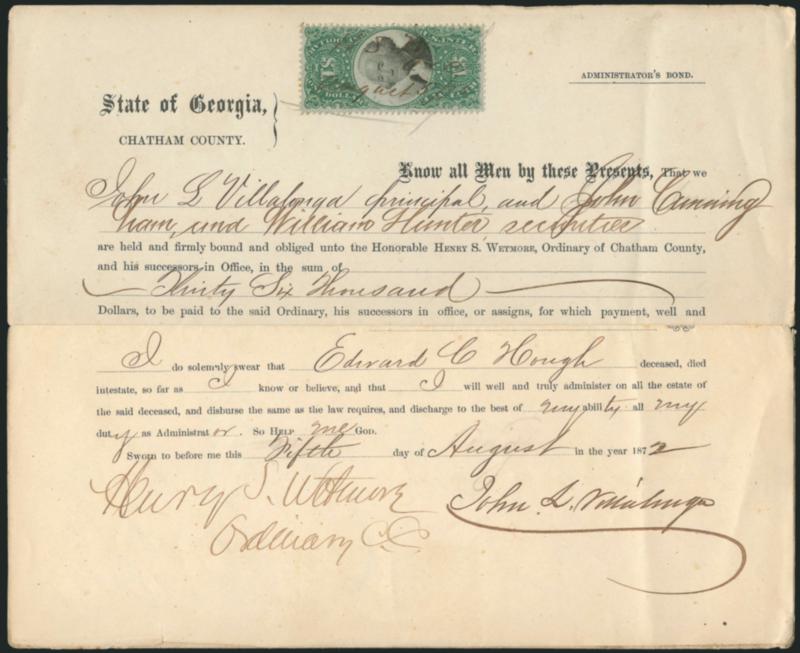 ADMINISTRATOR'S BOND.
State of Georgia,
CHATHAM COUNTY.
Know all Men by these Presents, That we
John L Villalonga principal, and John Cunning
ham, and William Hunter securities
are held and firmly bound and obliged unto the Honorable HENRY S. WETMORE, Ordinary of Chatham County,
and his successors in Office, in the sum of
Thirty Six Thousand
Dollars, to be paid to the said Ordinary, his successors in office, or assigns, for which payment, well and
I do solemnly swear that Edward C Hough deceased, died
intestate, so far as I know or believe, and that I will well and truly administer on all the estate of
the said deceased, and disburse the same as the law requires, and discharge to the best of my ability all my
duty as Administrator. SO HELP me GOD.
Sworn to before me this Fifth day of August in the year 1872
Henry S. Wetmore John L. Villalonga
Ordinary C C